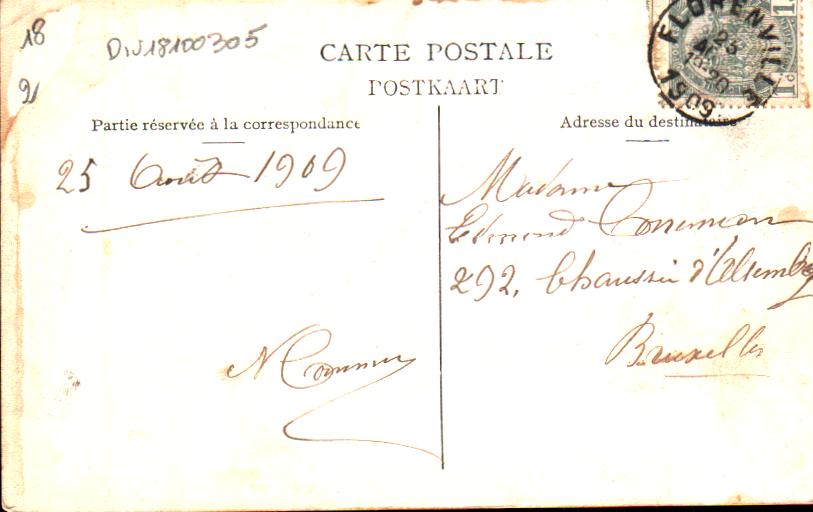 18
91
CARTE POSTALE
POSTKAART
FLORENVILLE
25
1909
1c
Partie réservée à la correspondance
Adresse du destinataire
25 Août 1909
Madame
Edmond
292, Chaussée d'Alsemberg
Bruxelles
N